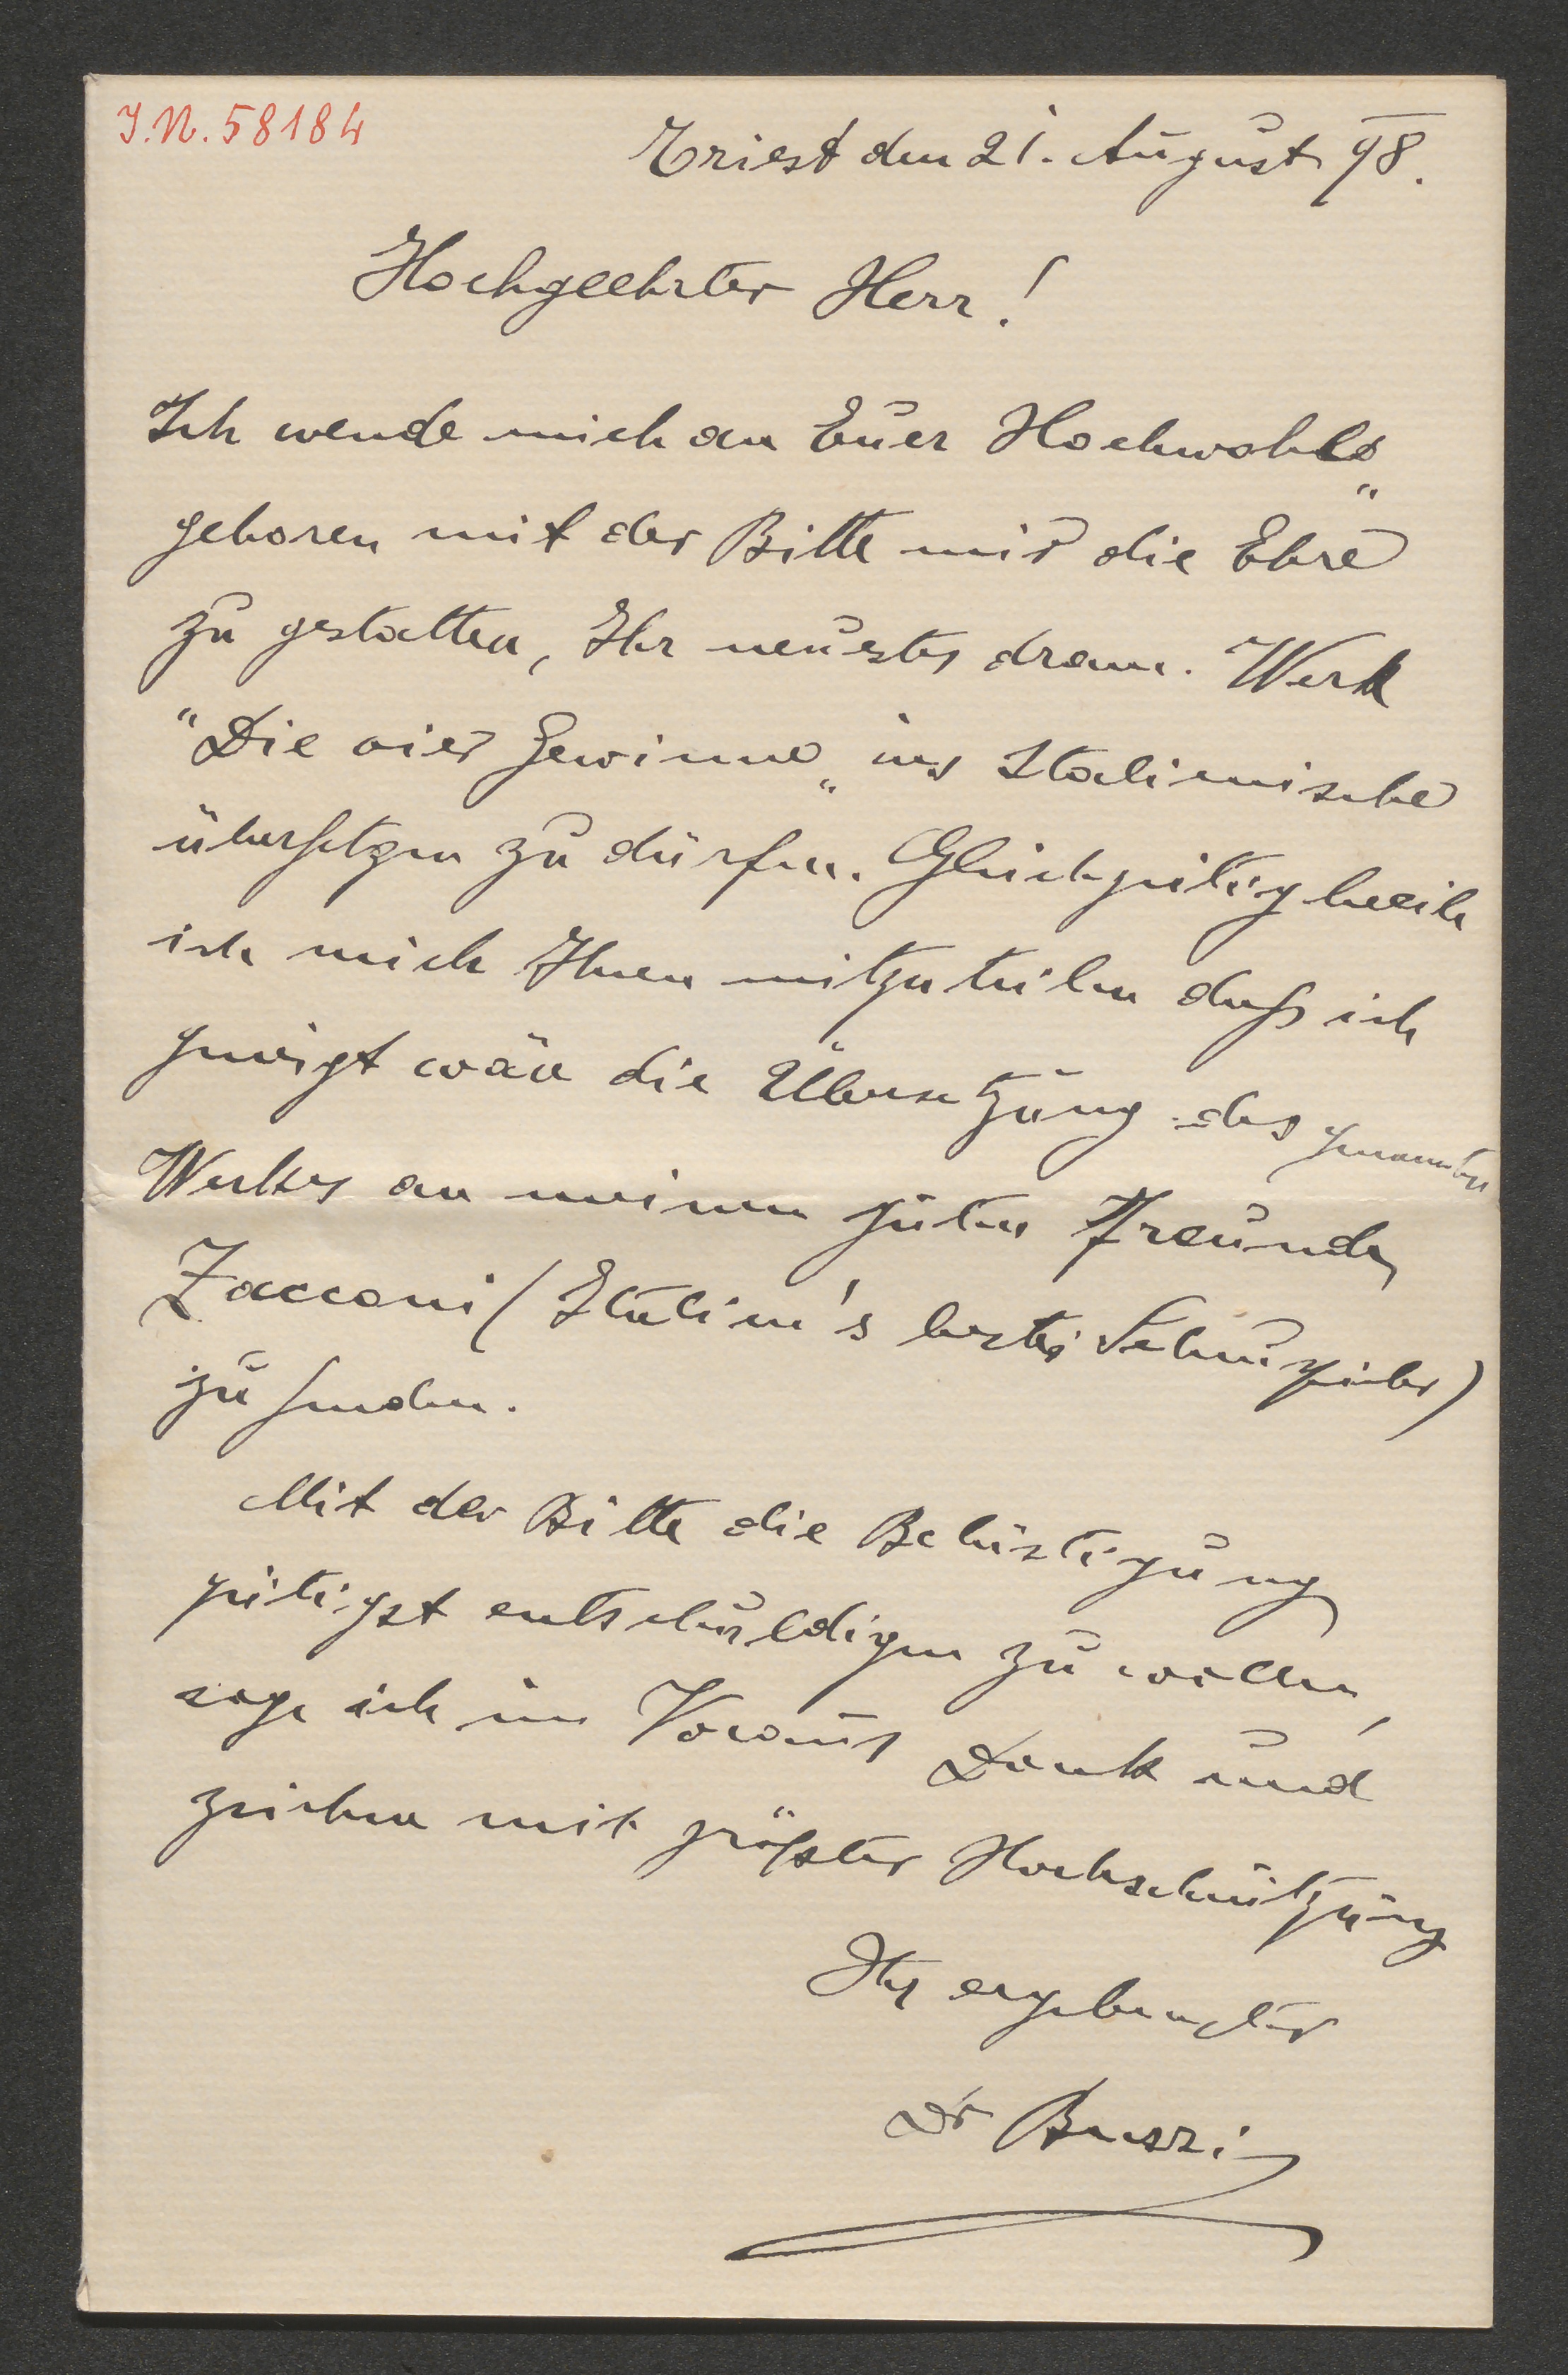 I.N. 58184
Triest den 21. August 98.
Hochgeehrter Herr!
Ich wende mich an Euer Hochwohl„
geboren mit der Bitte mir die Ehre
zu gestatten, Ihr neuestes dram. Werk
"Die vier Gewinner„ ins Italienische
übersetzen zu dürfen. Gleichzeitig beeile
ich mich Ihnen mitzuteilen daß ich
geneigt wäre die Übersetzung des genannten
Werkes an meinen guten Freunde
Zacconi (Italien's bester Schauspieler)
zu senden.
Mit der Bitte die Belästigung
gütigst entschuldigen zu wollen,
sage ich im Voraus Dank und
zeichne mit größter Hochschätzung
Ihr ergebenster
Dr